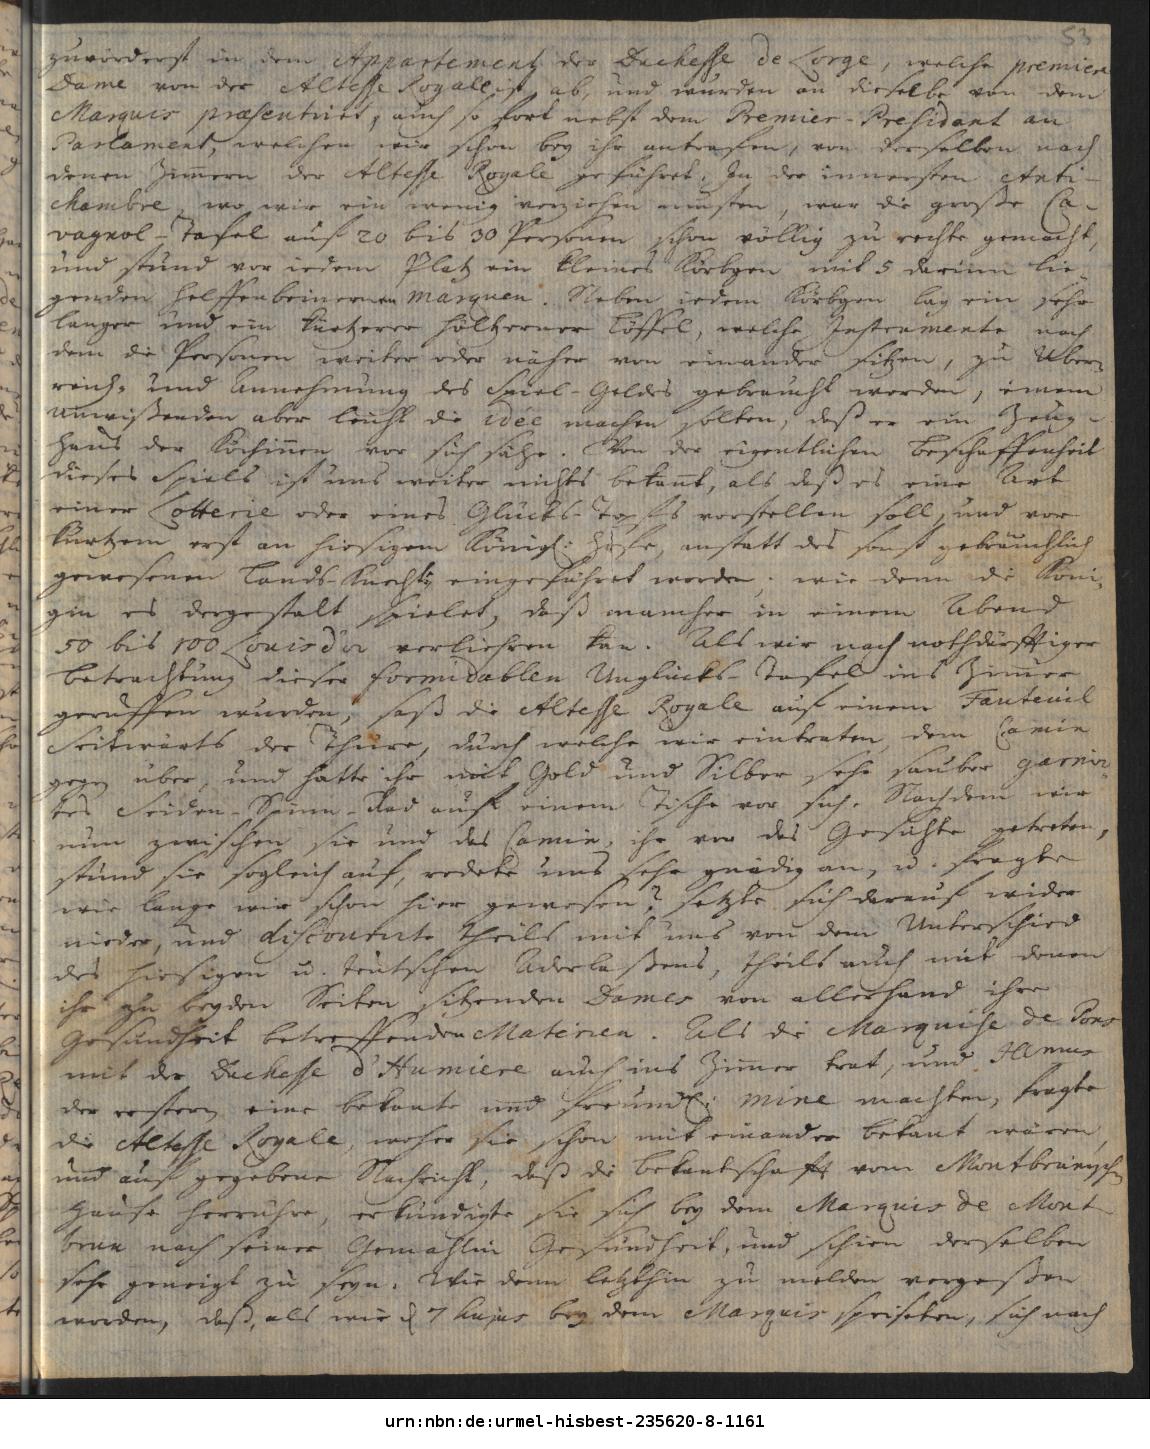 53
zuvörderst in dem Appartement der Duchesse de Lorge, welche premiere
Dame von der Altesse Royalle ist, ab, und wurden an dieselbe von dem
Marquis præsentiret, auch so fort nebst dem Premier-President au
Parlament, welchen wir schon bey ihr antrafen, von derselben nach
denen Zim̅ern der Altesse Royale geführet. In der innersten Anti-
chambre, wo wir ein wenig verziehen musten, war die große Ca-
vagnol-Tafel auf 20 bis 30 Personen schon völlig zu rechte gemacht,
und stund vor iedem Platz ein kleines Körbgen mit 5 darinn lie-
genden helffenbeinernen marquen. Neben iedem Körbgen lag ein sehr
langer und ein kürtzerer höltzerner Löffel, welche Instrumente nach
dem die Personen weiter oder näher von einander sitzen, zu Uber-
reich- und Annehmung des Spiel-Geldes gebraucht werden, einem
unwißenden aber leicht die idée machen solten, daß er ein Zeug-
hauß der Köchin̅en vor sich sähe. Von der eigentlichen Beschaffenheit
dieses Spiels ist uns weiter nichts bekan̅t, als daß es eine Art
einer Lotterie oder eines Glücks-Topfs vorstellen soll, und vor
kurtzem erst an hiesigem Königl: Hofe, anstatt des sonst gebräuchlich
gewesenen Lands-Knechts eingeführet worden; wie denn die Köni-
gin es dergestalt spielet, daß mancher in einem Abend
50 bis 100 Louisd'or verliehren kan. Als wir nach nothdürfftiger
Betrachtung dieser formidablen Unglücks-Tafel ins Zim̅er
geruffen wurden, saß die Altesse Royale auf einem Fauteuil
seitwärts der Thüre, durch welche wir eintraten, dem Camin
gegen über, und hatte ihr mit Gold und Silber sehr sauber garnir-
tes Seiden-Spinn-Rad auf einem Tische vor sich. Nachdem wir
nun zwischen sie und das Camin, ihr vor das Gesichte getreten,
stund sie sogleich auf, redete uns sehr gnädig an, u. fragte
wie lange wir schon hier gewesen? setzte sich darauf wider
nieder, und discourirte theils mit uns von dem Unterschied
des hiesigen u. teutschen Aderlaßens, theils auch mit denen
ihr zu beyden Seiten sitzenden Dames von allerhand ihre
Gesundheit betreffenden Materien. Als die Marquise de Pons
mit der Duchesse d'Humiere auch ins Zim̅er trat, und
der erstern eine bekante und freundl: mine machten, fragte
die Altesse Royale, woher sie schon mit einander bekant wären,
und auf gegebene Nachricht, daß die Bekantschafft vom Montbrunisch
Hause herrühre, erkundigte sie sich bey dem Marquis de Mont-
brun nach seiner Gemahlin Gesundheit, und schien derselben
sehr geneigt zu seyn. Wie denn letzthin zu melden vergeßen
worden, daß, als wir d 7 hujus bey dem Marquis speiseten, sich nach
urn:nbn:de:urmel-hisbest-235620-8-1161